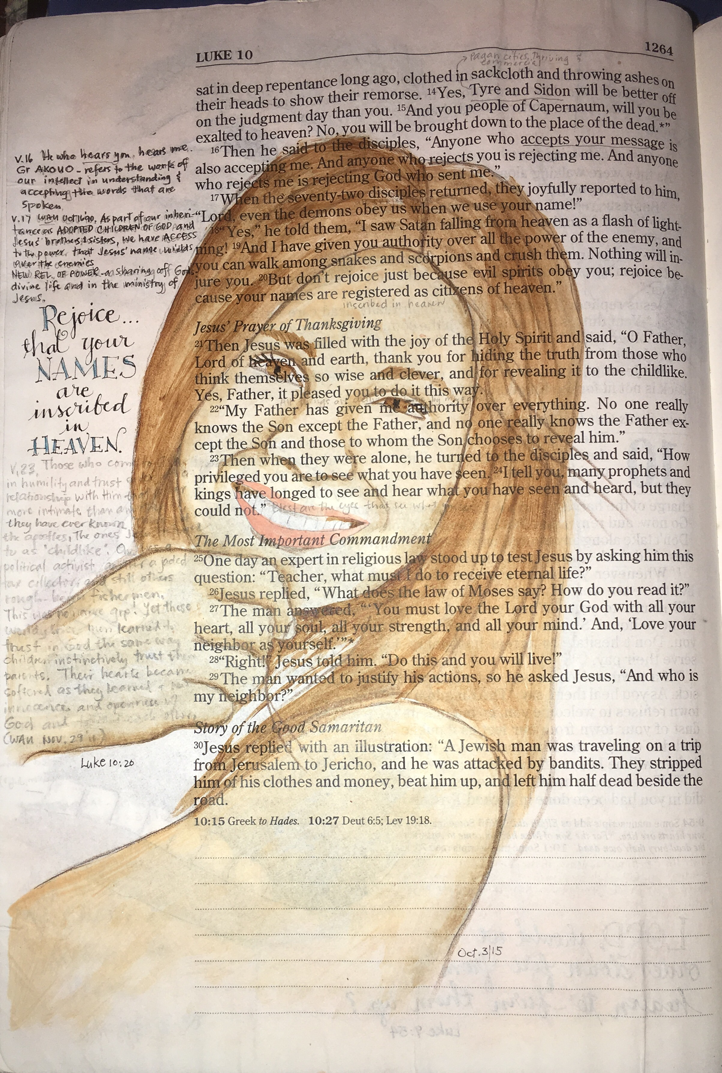 LUKE 10
1264
sat in deep repentance long ago, clothed in sackcloth and throwing ashes on
their heads to show their remorse. 14Yes, Tyre and Sidon will be better off
on the judgment day than you. 15And you people of Capernaum, will you be
exalted to heaven? No, you will be brought down to the place of the dead.*”
16Then he said to the disciples, “Anyone who accepts your message is
also accepting me. And anyone who rejects you is rejecting me. And anyone
who rejects me is rejecting God who sent me.”
17When the seventy-two disciples returned, they joyfully reported to him,
“Lord, even the demons obey us when we use your name!”
18“Yes,” he told them, “I saw Satan falling from heaven as a flash of light-
ning! 19And I have given you authority over all the power of the enemy, and
you can walk among snakes and scorpions and crush them. Nothing will in-
jure you. 20But don’t rejoice just because evil spirits obey you; rejoice be-
cause your names are registered as citizens of heaven.”
inscribed in heaven
Jesus’ Prayer of Thanksgiving
21Then Jesus was filled with the joy of the Holy Spirit and said, “O Father,
Lord of heaven and earth, thank you for hiding the truth from those who
think themselves so wise and clever, and for revealing it to the childlike.
Yes, Father, it pleased you to do it this way.
22“My Father has given me authority over everything. No one really
knows the Son except the Father, and no one really knows the Father ex-
cept the Son and those to whom the Son chooses to reveal him.”
23Then when they were alone, he turned to the disciples and said, “How
privileged you are to see what you have seen. 24I tell you, many prophets and
kings have longed to see and hear what you have seen and heard, but they
could not.”
The Most Important Commandment
25One day an expert in religious law stood up to test Jesus by asking him this
question: “Teacher, what must I do to receive eternal life?”
26Jesus replied, “What does the law of Moses say? How do you read it?”
27The man answered, “‘You must love the Lord your God with all your
heart, all your soul, all your strength, and all your mind.’ And, ‘Love your
neighbor as yourself.’”*
28“Right!” Jesus told him. “Do this and you will live!”
29The man wanted to justify his actions, so he asked Jesus, “And who is
my neighbor?”
Story of the Good Samaritan
30Jesus replied with an illustration: “A Jewish man was traveling on a trip
from Jerusalem to Jericho, and he was attacked by bandits. They stripped
him of his clothes and money, beat him up, and left him half dead beside the
road.
10:15 Greek to Hades. 10:27 Deut 6:5; Lev 19:18.
V.16 He who hears you, hears me.
Gr AKOUO - refers to the work of
our intellect in understanding &
accepting the words that are
spoken
V.17 As part of our inheri-
tance as ADOPTED CHILDREN OF GOD and
Jesus' brothers & sisters, we have ACCESS
to the power that Jesus' name wields
over the enemies
POWER as sharing of God
divine life and in the ministry of
Jesus.
Rejoice...
that your
NAMES
are
inscribed
in
HEAVEN.
V.23, Those who
in humility and trust
relationship with him
more intimate than
they have ever known
the apostles, The ones
to as 'childlike'.
political activist
tax collector and still others
rough fishermen.
Yet these
learned to
trust in God the same way
children instinctively trust
parents. Their hearts became
softened as they learned
innocence and openness
God and
Luke 10:20
Oct. 3/15
Luke 9:54